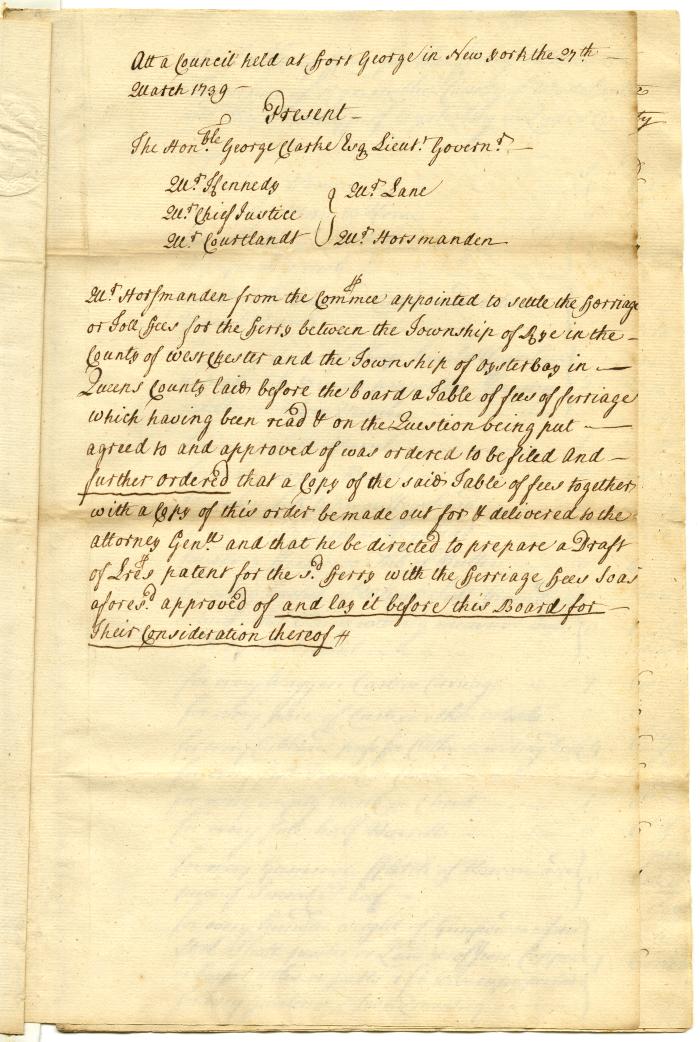 Att a Council held at Fort George in New York the 27th
March 1739
Present
The Honble George Clarke Esq Lieut Governr
Mr Kennedy Mr Lane
Mr Chief Justice
Mr Courtlandt Mr Horsmanden
Mr Horsmanden from the Commee appointed to settle the Ferriage
or Toll Fees for the Ferry between the Township of Rye in the
County of westChester and the Township of oysterbay in
Queens County laid before the board a Table of fees of ferriage
which having been read & on the Question being put
agreed to and approved of was ordered to be filed And
further ordered that a Copy of the said Table of fees together
with a Copy of this order be made out for & delivered to the
attorney Genll and that he be directed to prepare a Draft
of Lres patent for the sd Ferry with the Ferriage Fees so as
aforesd approved of and lay it before this Board for
Their Consideration thereof